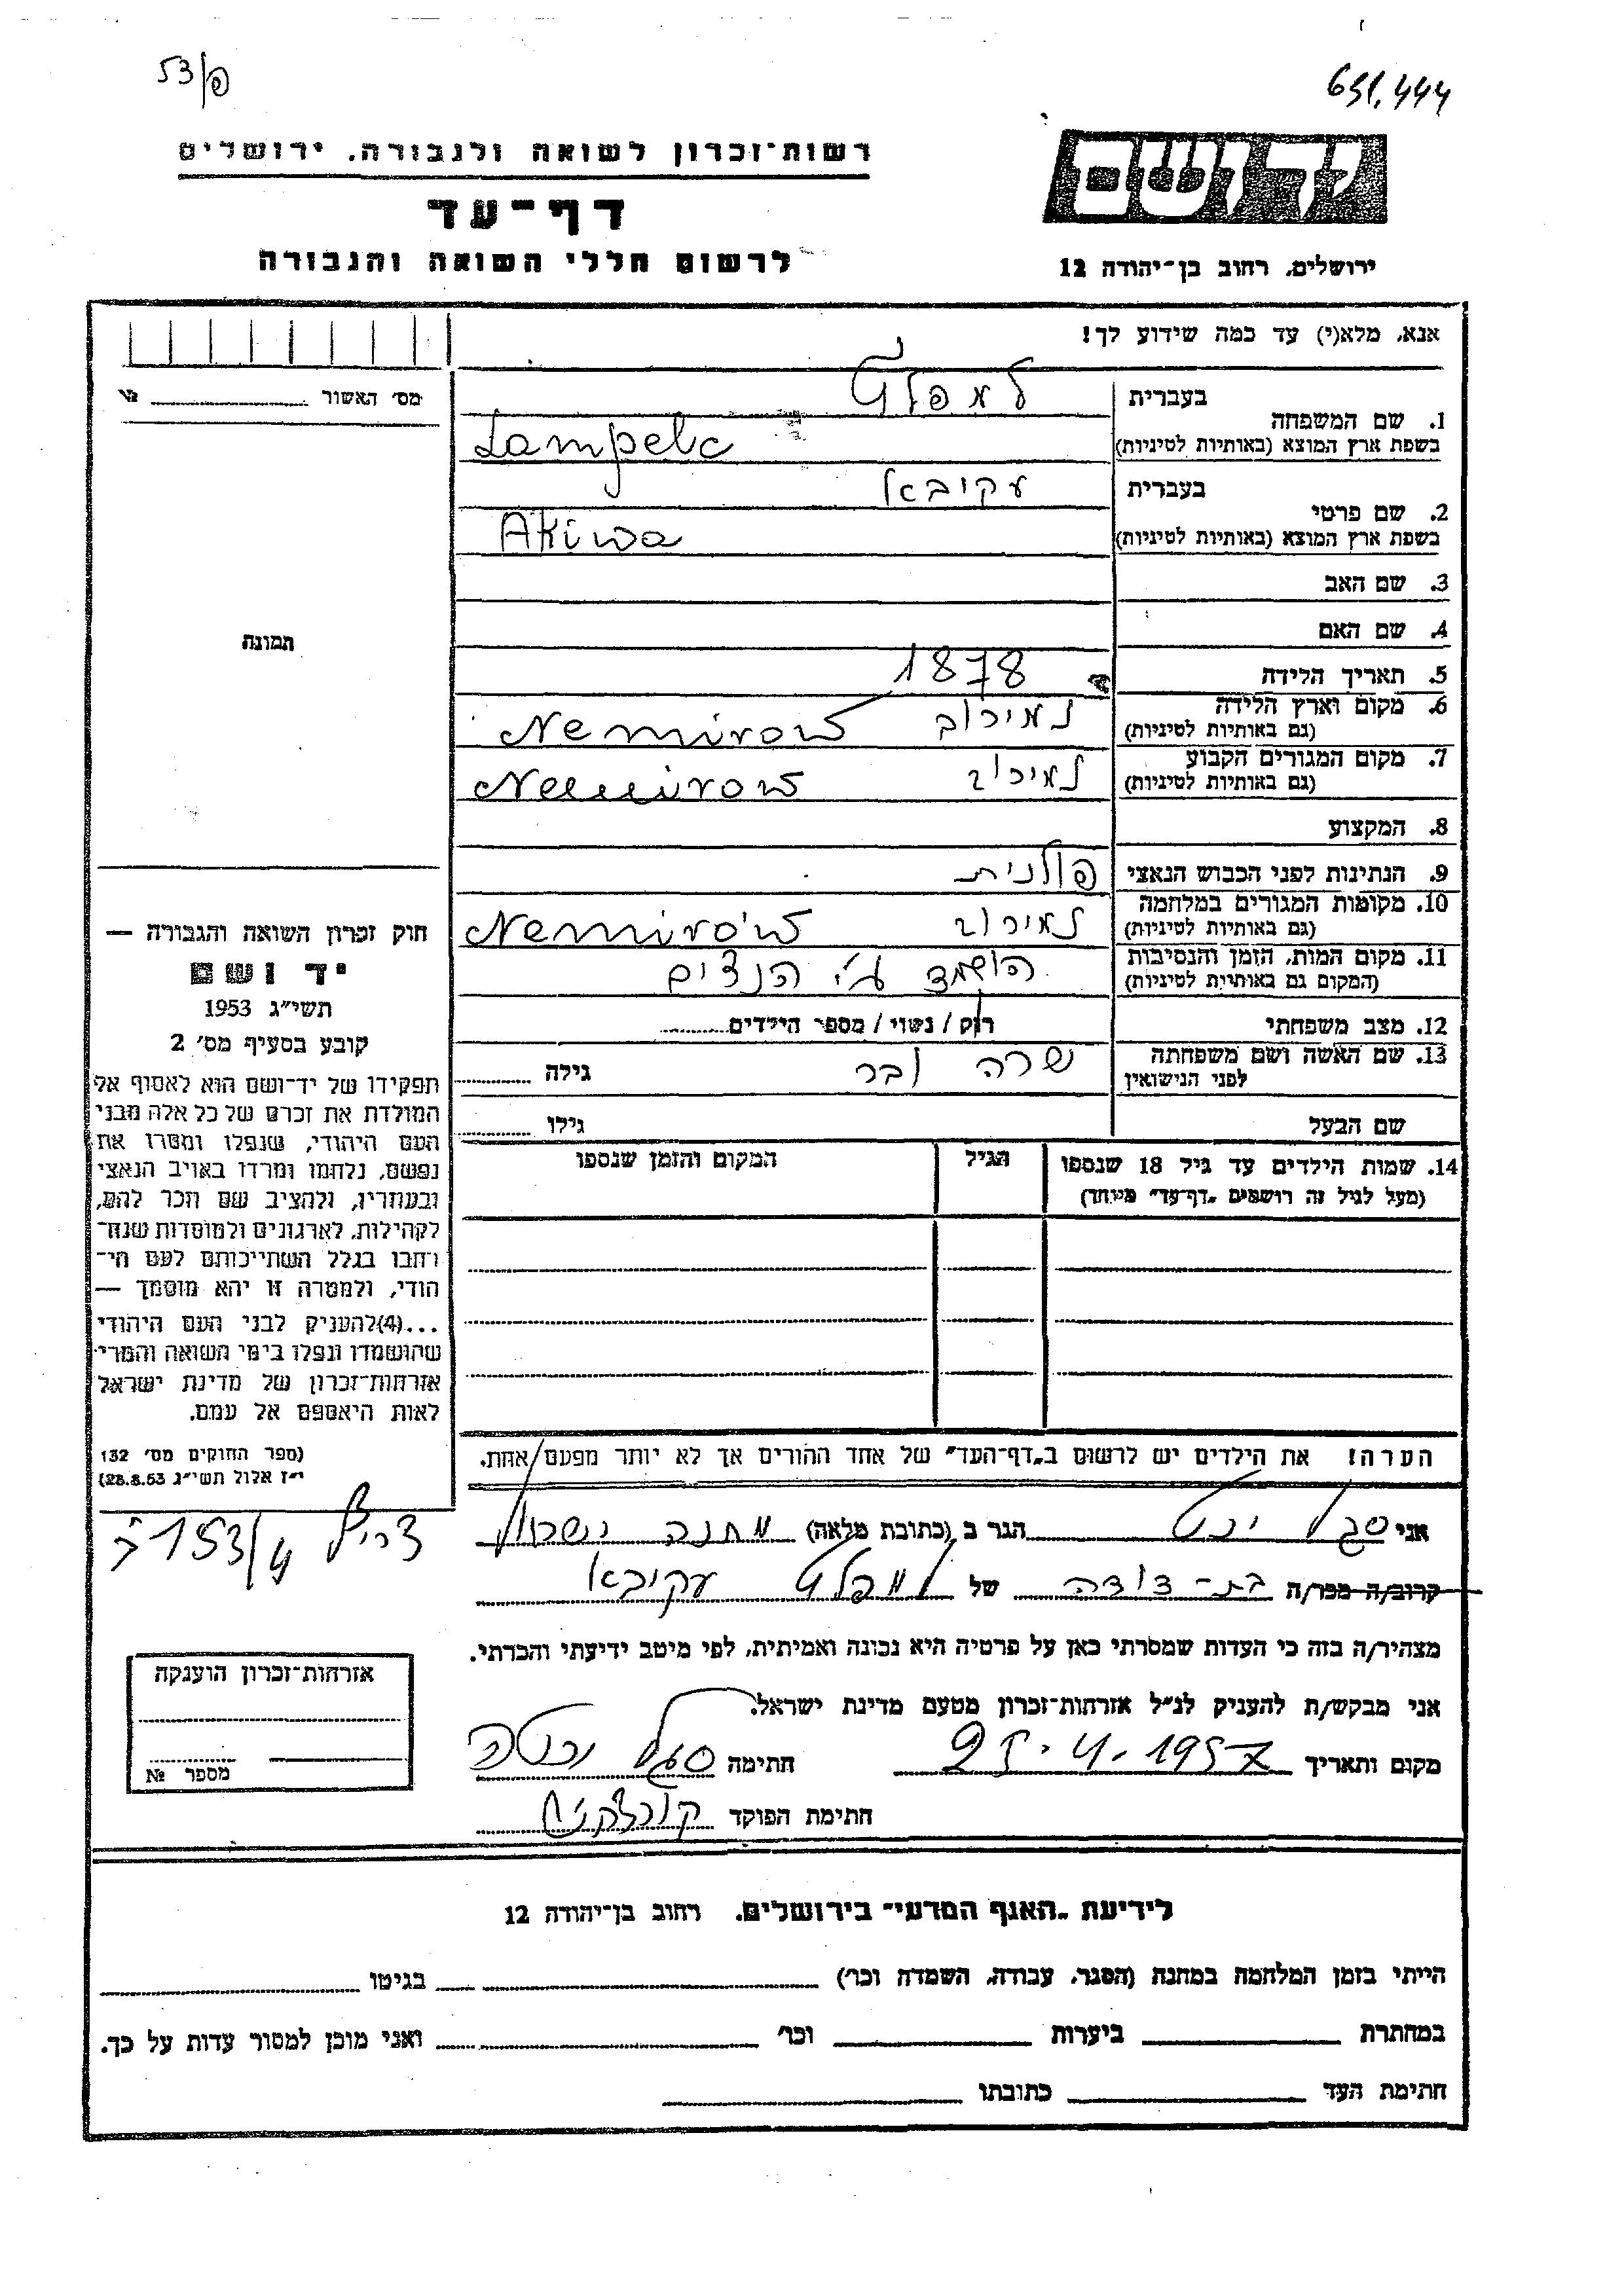 53/פ
651,444
ידושם
רשות־זכרון לשואה ולגבורה, ירושלים
דף־עד
לרשום חללי השואה והגבורה
ירושלים, רחוב בן־יהודה 12
אנא, מלא(י) עד כמה שידוע לך!
מס' האשור №
תמונה
1. שם המשפחה
בעברית
בשפת ארץ המוצא (באותיות לטיניות)
2. שם פרטי
בעברית עקיבא
בשפת ארץ המוצא (באותיות לטיניות) Akiwa
3. שם האב
4. שם האם
5. תאריך הלידה 1878
6. מקום וארץ הלידה (גם באותיות לטיניות) נמירוב Nemirow
7. מקום המגורים הקבוע (גם באותיות לטיניות) נמירוב Nemirow
8. המקצוע
9. הנתינות לפני הכבוש הנאצי פולנית
10. מקומות המגורים במלחמה (גם באותיות לטיניות) נמירוב Nemirów
11. מקום המות, הזמן והנסיבות (המקום גם באותיות לטיניות) הושמד ע"י הנצים
12. מצב משפחתי רוק / נשוי / מספר הילדים
13. שם האשה ושם משפחתה לפני הנישואין שרה ובר גילה
שם הבעל גילו
14. שמות הילדים עד גיל 18 שנספו (מעל לגיל זה רושמים "דף־עד" מיוחד)
הגיל
המקום והזמן שנספו
הערה! את הילדים יש לרשום ב"דף־העד" של אחד ההורים אך לא יותר מפעם אחת.
חוק זכרון השואה והגבורה —
יד ושם
תשי"ג 1953
קובע בסעיף מס' 2
תפקידו של יד־ושם הוא לאסוף אל
המולדת את זכרם של כל אלה מבני
העם היהודי, שנפלו ומסרו את
נפשם, נלחמו ומרדו באויב הנאצי
ובעוזריו, ולהציב שם וזכר להם,
לקהילות, לארגונים ולמוסדות שנח־
רבו בגלל השתייכותם לעם הי־
הודי, ולמטרה זו יהא מוסמך —
...(4)להעניק לבני העם היהודי
שהושמדו ונפלו בימי השואה והמרי
אזרחות־זכרון של מדינת ישראל
לאות היאספם אל עמם.
(ספר החוקים מס' 132
י"ז אלול תשי"ג 28.8.53)
צריף 153/4
אני סגל הגר ב (כתובת מלאה) מחנה ישראל
קרוב/ה מכר/ה בת־דודה של עקיבא
מצהיר/ה בזה כי העדות שמסרתי כאן על פרטיה היא נכונה ואמיתית, לפי מיטב ידיעתי והכרתי.
אני מבקש/ת להעניק לנ"ל אזרחות־זכרון מטעם מדינת ישראל.
מקום ותאריך 25.4.1957 חתימה סגל
חתימת הפוקד
אזרחות־זכרון הוענקה
מספר №
לידיעת "האגף המדעי" בירושלים, רחוב בן־יהודה 12
הייתי בזמן המלחמה במחנה (הסגר, עבודה, השמדה וכו') בגיטו
במחתרת ביערות וכו' ואני מוכן למסור עדות על כך.
חתימת העד כתובתו